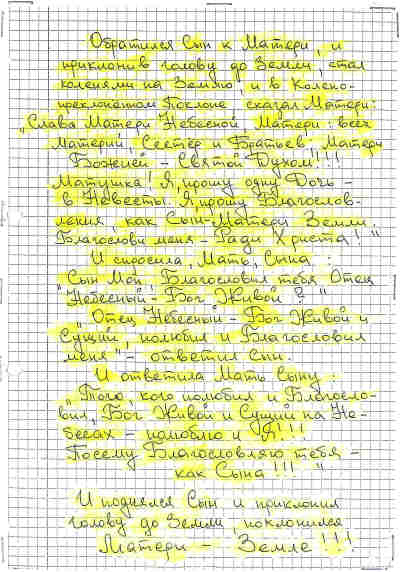 Обратился Сын к Матери, и
приклонив голову до Земли, стал
коленями на Землю, и в Колено-
преклоненном Поклоне сказал Матери:
„Слава Матери Небесной, Матери всех
Матерей, Сестёр и Братьев, Матери
Божией – Святой Духом!!!
Матушка! Я, прошу одну Дочь –
в Невесты. Я, прошу Благослов-
ления, как Сын – Матери Земли.
Благослови меня – Ради Христа!"
И спросила, Мать, Сына:
„Сын Мой, Благословил тебя Отец
Небесный – Бог Живой?"
„Отец Небесный – Бог Живой и
Сущий, полюбил и Благословил
меня" – ответил Сын.
И ответила Мать Сыну:
„Того, кого полюбил и Благосло-
вил, Бог Живой и Сущий на Не-
бесах – полюблю и Я!!!
Посему Благословляю тебя –
как Сына!!!"
И поднялся Сын и приклонил
голову до Земли, поклонился
Матери – Земле!!!